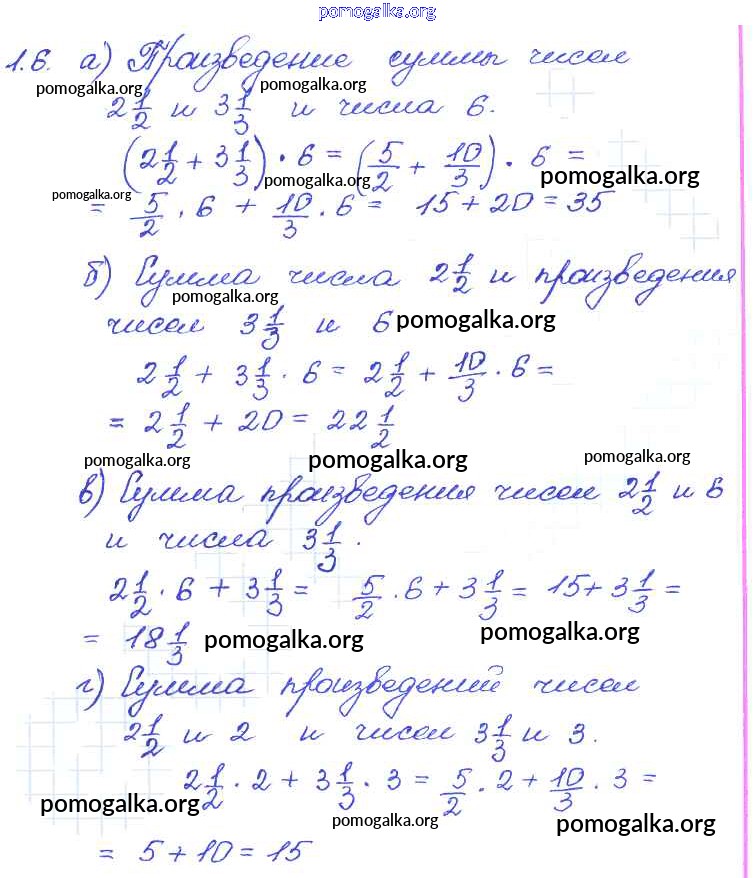 pomogalka.org
1.6. а) Произведение суммы чисел
pomogalka.org pomogalka.org
2 1/2 и 3 1/3 и числа 6.
(2 1/2 + 3 1/3) · 6 = (5/2 + 10/3) · 6 =
pomogalka.org pomogalka.org
pomogalka.org
= 5/2 · 6 + 10/3 · 6 = 15 + 20 = 35
б) Сумма числа 2 1/2 и произведения
pomogalka.org
чисел 3 1/3 и 6 pomogalka.org
2 1/2 + 3 1/3 · 6 = 2 1/2 + 10/3 · 6 =
= 2 1/2 + 20 = 22 1/2
pomogalka.org pomogalka.org pomogalka.org
в) Сумма произведения чисел 2 1/2 и 6
и числа 3 1/3.
2 1/2 · 6 + 3 1/3 = 5/2 · 6 + 3 1/3 = 15 + 3 1/3 =
= 18 1/3 pomogalka.org pomogalka.org
г) Сумма произведений чисел
2 1/2 и 2 и чисел 3 1/3 и 3.
2 1/2 · 2 + 3 1/3 · 3 = 5/2 · 2 + 10/3 · 3 =
pomogalka.org pomogalka.org pomogalka.org
= 5 + 10 = 15